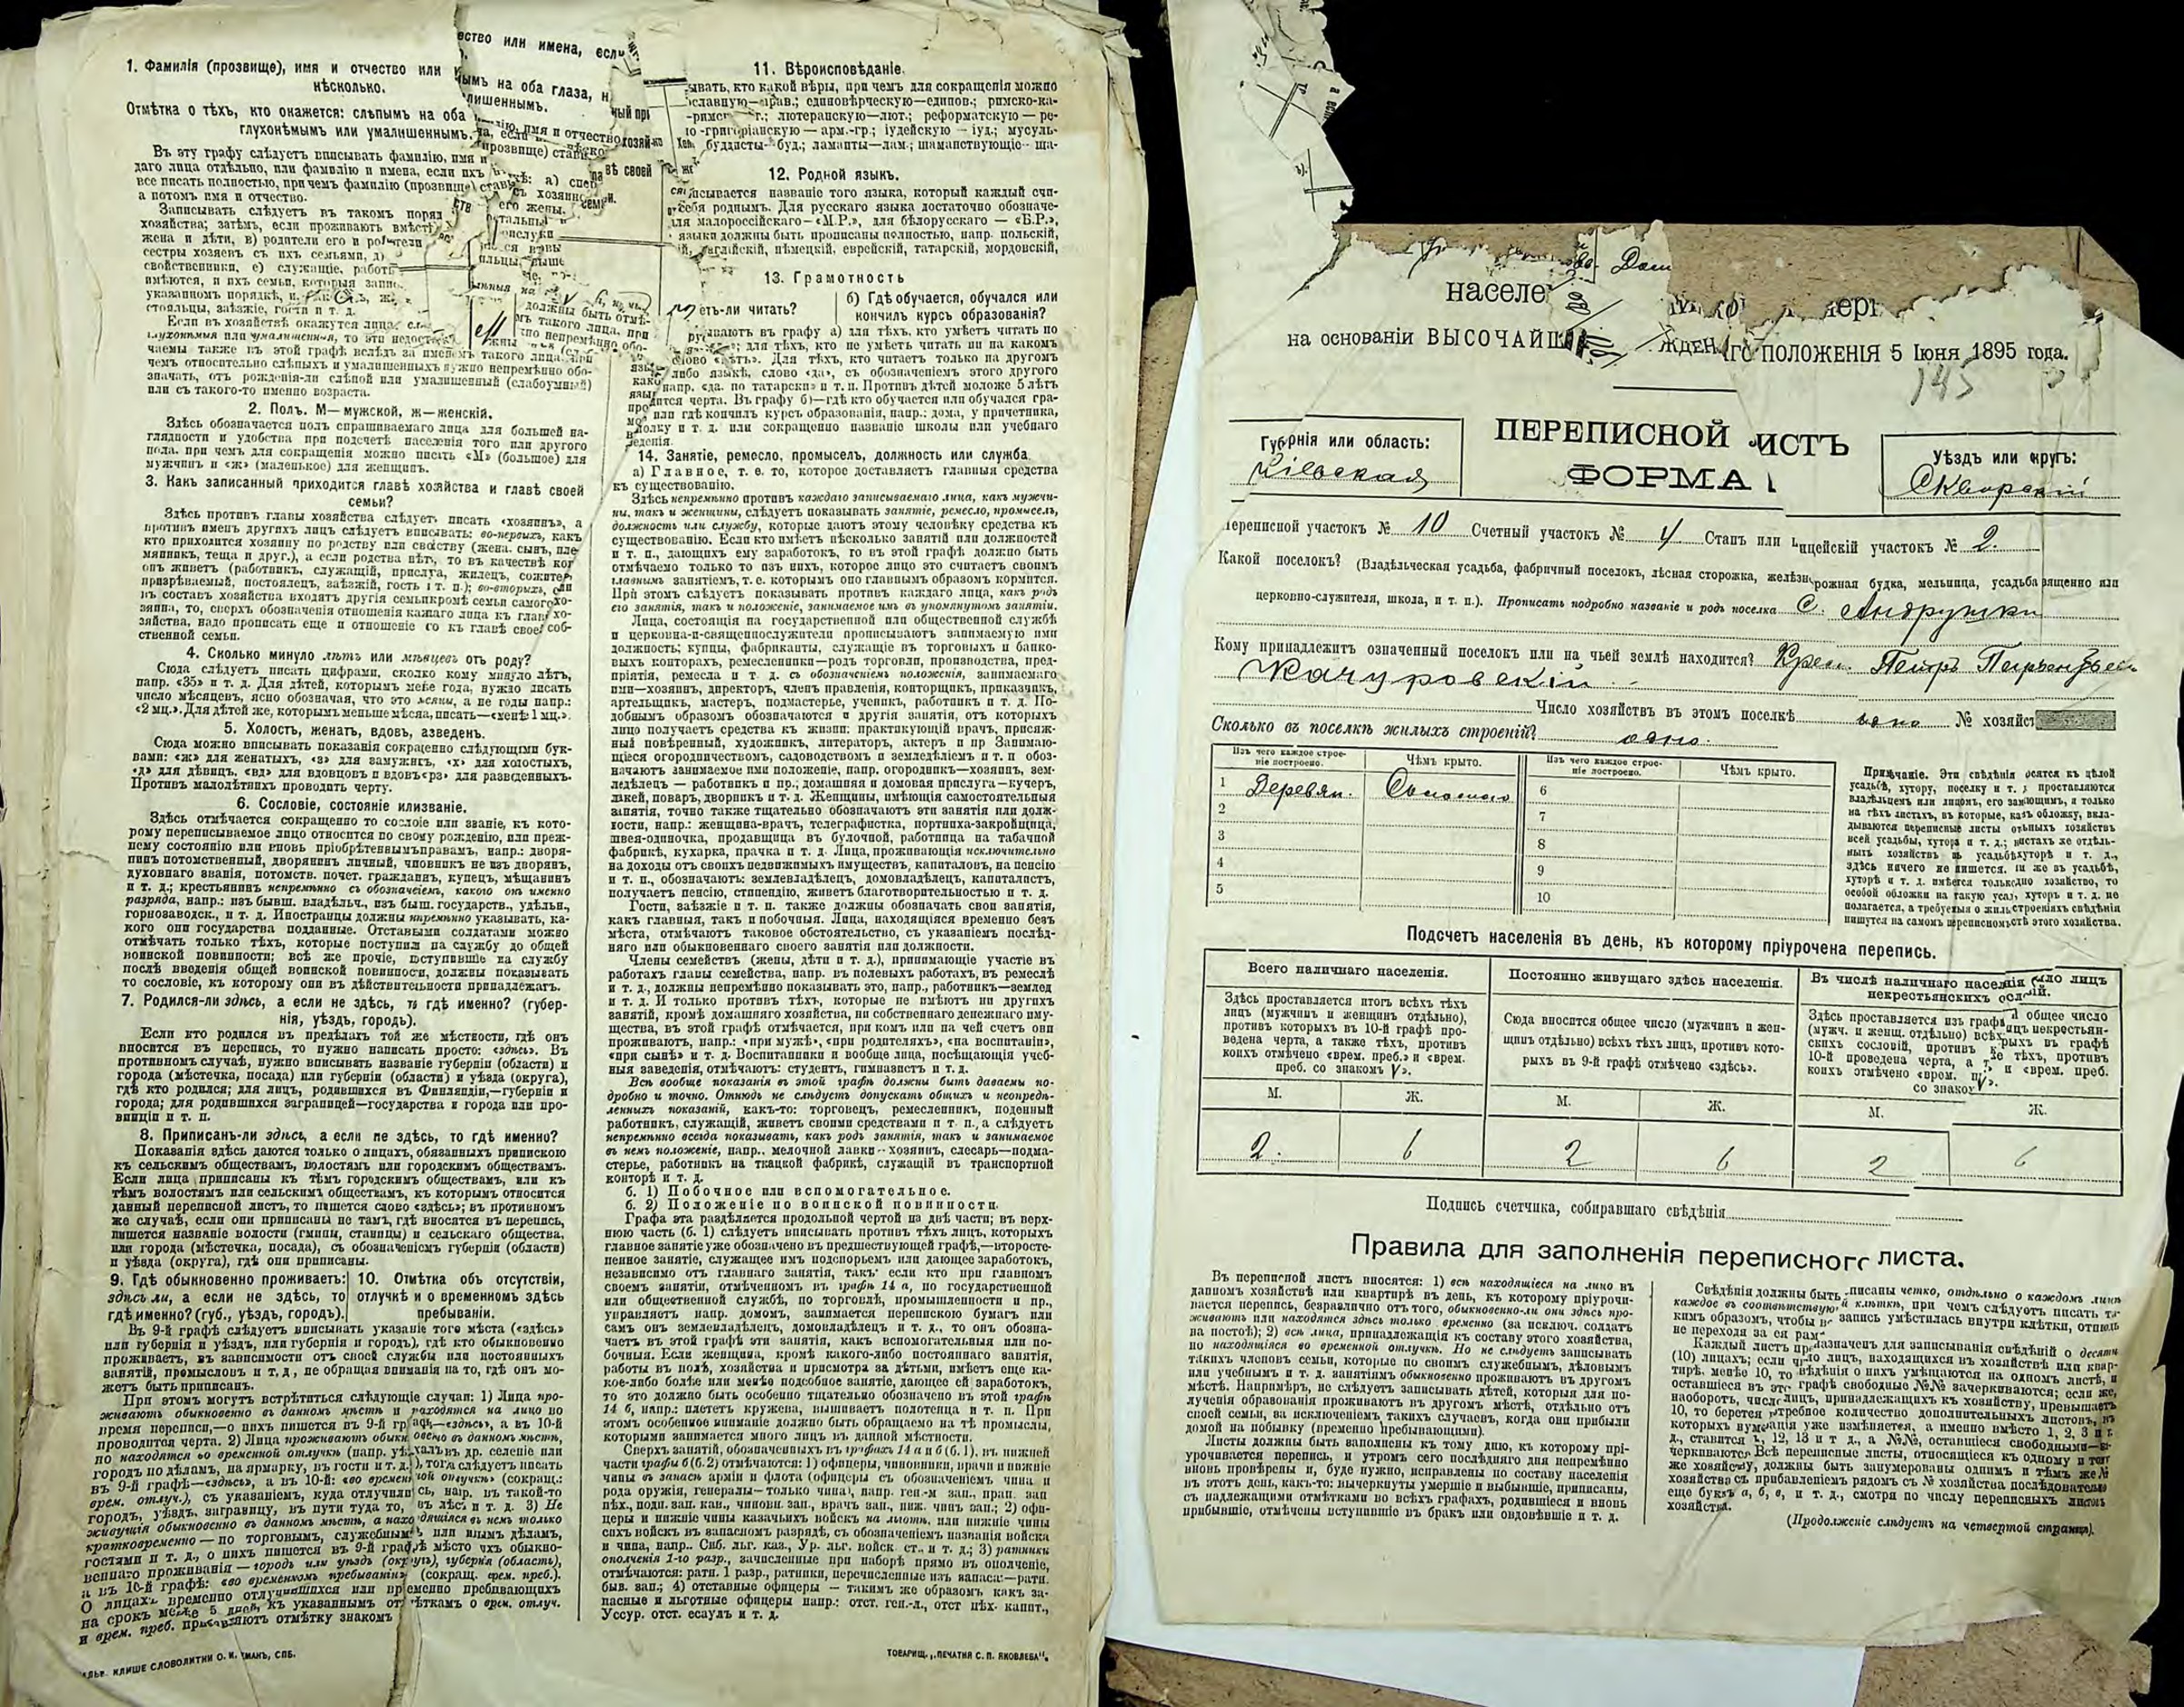 1. Фамилія (прозвище), имя и отчество или
нѣсколько.
Отмѣтка о тѣхъ, кто окажется: слѣпымъ на оба
глухонѣмымъ или умалишеннымъ.
ество или имена, если
ымъ на оба глаза, н
лишеннымъ.
Въ эту графу слѣдуетъ вписывать фамилію, имя и
даго лица отдѣльно, или фамилію и имена, если ихъ
все писать полностью, при чемъ фамилію (прозвище) ставя
а потомъ имя и отчество.
Записывать слѣдуетъ въ такомъ поряд
хозяйства; затѣмъ, если проживаютъ вмѣстѣ
жена и дѣти, в) родители его и родители
сестры хозяевъ съ ихъ семьями, д)
свойственники, е) служащіе, работн
имѣются, и ихъ семьи, которыя запис
указанномъ порядкѣ, и.
стояльцы, заѣзжіе, гости и т. д.
Если въ хозяйствѣ окажутся лица: сл
глухонѣмыя или умалишенныя, то эти недостатки
чаемы также въ этой графѣ вслѣдъ за именемъ такого лица, при
чемъ относительно слѣпыхъ и умалишенныхъ нужно непремѣнно обо-
значать, отъ рожденія-ли слѣпой или умалишенный (слабоумный)
или съ такого-то именно возраста.
2. Полъ. М—мужской, ж—женскій.
Здѣсь обозначается полъ спрашиваемаго лица для большей на-
глядности и удобства при подсчетѣ населенія того или другого
пола, при чемъ для сокращенія можно писать «М» (большое) для
мужчинъ и «ж» (маленькое) для женщинъ.
3. Какъ записанный приходится главѣ хозяйства и главѣ своей
семьи?
Здѣсь противъ главы хозяйства слѣдуетъ писать «хозяинъ», а
противъ именъ другихъ лицъ слѣдуетъ вписывать: во-первыхъ, какъ
кто приходится хозяину по родству или свойству (жена, сынъ, пле
мянникъ, теща и друг.), а если родства нѣтъ, то въ качествѣ ког
онъ живетъ (работникъ, служащій, прислуга, жилецъ, сожител
призрѣваемый, постоялецъ, заѣзжій, гость и т. п.); во-вторыхъ, если
въ составъ хозяйства входятъ другія семьи кромѣ семьи самого хо-
зяина, то, сверхъ обозначенія отношенія каждаго лица къ главѣ хо-
зяйства, надо прописать еще и отношеніе его къ главѣ своей соб-
ственной семьи.
4. Сколько минуло лѣтъ или мѣсяцевъ отъ роду?
Сюда слѣдуетъ писать цифрами, сколко кому минуло лѣтъ,
напр. «35» и т. д. Для дѣтей, которымъ менѣе года, нужно писать
число мѣсяцевъ, ясно обозначая, что это мѣсяцы, а не годы напр.:
«2 мц.». Для дѣтей же, которымъ меньше мѣсяца, писать—«менѣе 1 мц.».
5. Холостъ, женатъ, вдовъ, разведенъ.
Сюда можно вписывать показанія сокращенно слѣдующими бук-
вами: «ж» для женатыхъ, «з» для замужнихъ, «х» для холостыхъ,
«д» для дѣвицъ, «вд» для вдовцовъ и вдовъ «рз» для разведенныхъ.
Противъ малолѣтнихъ проводить черту.
6. Сословіе, состояніе или званіе.
Здѣсь отмѣчается сокращенно то сословіе или званіе, къ кото-
рому переписываемое лицо относится по своему рожденію, или преж-
нему состоянію или вновь пріобрѣтеннымъ правамъ, напр.: дворя-
нинъ потомственный, дворянинъ личный, чиновникъ не изъ дворянъ,
духовнаго званія, потомств. почет. гражданинъ, купецъ, мѣщанинъ
и т. д.; крестьянинъ непремѣнно съ обозначеніемъ, какого онъ именно
разряда, напр.: изъ бывш. владѣльч., изъ быш. государств., удѣльн.,
горнозаводск., и т. д. Иностранцы должны непремѣнно указывать, ка-
кого они государства подданные. Отставными солдатами можно
отмѣчать только тѣхъ, которые поступили на службу до общей
воинской повинности; всѣ же прочіе, поступившіе на службу
послѣ введенія общей воинской повинности, должны показывать
то сословіе, къ которому они въ дѣйствительности принадлежатъ.
7. Родился-ли здѣсь, а если не здѣсь, то гдѣ именно? (губер-
нія, уѣздъ, городъ).
Если кто родился въ предѣлахъ той же мѣстности, гдѣ онъ
вносится въ перепись, то нужно написать просто: «здѣсь». Въ
противномъ случаѣ, нужно вписывать названіе губерніи (области) и
города (мѣстечка, посада) или губерніи (области) и уѣзда (округа),
гдѣ кто родился; для лицъ, родившихся въ Финляндіи,—губернію и
города; для родившихся заграницей—государства и города или про-
винціи и т. п.
8. Приписанъ-ли здѣсь, а если не здѣсь, то гдѣ именно?
Показанія здѣсь даются только о лицахъ, обязанныхъ припискою
къ сельскимъ обществамъ, волостямъ или городскимъ обществамъ.
Если лица приписаны къ тѣмъ городскимъ обществамъ, или къ
тѣмъ волостямъ или сельскимъ обществамъ, къ которымъ относится
данный переписной листъ, то пишется слово «здѣсь»; въ противномъ
же случаѣ, если они приписаны не тамъ, гдѣ вносятся въ перепись,
пишется названіе волости (гмины, станицы) и сельскаго общества,
или города (мѣстечка, посада), съ обозначеніемъ губерніи (области)
и уѣзда (округа), гдѣ они приписаны.
9. Гдѣ обыкновенно проживаетъ:
здѣсь ли, а если не здѣсь, то
гдѣ именно? (губ., уѣздъ, городъ).
10. Отмѣтка объ отсутствіи,
отлучкѣ и о временномъ здѣсь
пребываніи.
Въ 9-й графѣ слѣдуетъ вписывать указаніе того мѣста («здѣсь»
или губернія и уѣздъ, или губернія и городъ), гдѣ кто обыкновенно
проживаетъ, въ зависимости отъ своей службы или постоянныхъ
занятій, промысловъ и т. д., не обращая вниманія на то, гдѣ онъ мо-
жетъ быть приписанъ.
При этомъ могутъ встрѣтиться слѣдующіе случаи: 1) Лица про-
живаютъ обыкновенно въ данномъ мѣстѣ и находятся на лицо во
время переписи,—о нихъ пишется въ 9-й графѣ—«здѣсь», а въ 10-й
проводится черта. 2) Лица проживаютъ обыкновенно въ данномъ мѣстѣ,
но находятся во временной отлучкѣ (напр. уѣхалъ въ др. селеніе или
городъ по дѣламъ, на ярмарку, въ гости и т. д.), тогда слѣдуетъ писать
въ 9-й графѣ—«здѣсь», а въ 10-й: «во временной отлучкѣ» (сокращ.:
врем. отлуч.), съ указаніемъ, куда отлучились, напр. въ такой-то
городъ, уѣздъ, заграницу, въ пути туда то, въ лѣсъ и т. д. 3) Не
живущія обыкновенно въ данномъ мѣстѣ, а находящіяся въ немъ только
кратковременно — по торговымъ, служебнымъ или инымъ дѣламъ,
гостями и т. д., о нихъ пишется въ 9-й графѣ мѣсто ихъ обыкно-
веннаго проживанія — городъ или уѣздъ (округъ), губернія (область),
а въ 10-й графѣ: «во временномъ пребываніи» (сокращ. врем. преб.).
О лицахъ временно отлучившихся или временно пребывающихъ
на срокъ менѣе 5 дней, къ указаннымъ отмѣткамъ о врем. отлуч.
и врем. преб. прибавляютъ отмѣтку знакомъ
КЛИШЕ СЛОВОЛИТНИ О. И. ЛЕМАНЪ, СПБ.
11. Вѣроисповѣданіе.
ывать, кто какой вѣры, при чемъ для сокращенія можно
ославную—прав.; единовѣрческую—единов.; римско-ка-
-римск г.; лютеранскую—лют.; реформатскую — ре-
о -григоріанскую — арм.-гр.; іудейскую — іуд.; мусуль-
буддисты—буд.; ламаиты—лам.; шаманствующіе—ша-
12. Родной языкъ.
писывается названіе того языка, который каждый счи-
себя роднымъ. Для русскаго языка достаточно обозначе-
для малороссійскаго—«М.Р.», для бѣлорусскаго — «Б.Р.»,
языки должны быть прописаны полностью, напр. польскій,
й, англійскій, нѣмецкій, еврейскій, татарскій, мордовскій,
13. Грамотность
еть-ли читать?
б) Гдѣ обучается, обучался или
кончилъ курсъ образованія?
ываютъ въ графу а) для тѣхъ, кто умѣетъ читать по
для тѣхъ, кто не умѣетъ читать ни на какомъ
слово «нѣтъ». Для тѣхъ, кто читаетъ только на другомъ
либо языкѣ, слово «да», съ обозначеніемъ этого другого
напр. «да, по татарски» и т. п. Противъ дѣтей моложе 5 лѣтъ
дится черта. Въ графу б)—гдѣ кто обучается или обучался гра-
или гдѣ кончилъ курсъ образованія, напр.: дома, у причетника,
полку и т. д. или сокращенно названіе школы или учебнаго
ведѣнія.
14. Занятіе, ремесло, промыселъ, должность или служба
а) Главное, т. е. то, которое доставляетъ главныя средства
къ существованію.
Здѣсь непремѣнно противъ каждаго записываемаго лица, какъ мужчи-
ны, такъ и женщины, слѣдуетъ показывать занятіе, ремесло, промыселъ,
должность или службу, которые даютъ этому человѣку средства къ
существованію. Если кто имѣетъ нѣсколько занятій или должностей
и т. п., дающихъ ему заработокъ, то въ этой графѣ должно быть
отмѣчаемо только то изъ нихъ, которое лицо это считаетъ своимъ
главнымъ занятіемъ, т. е. которымъ оно главнымъ образомъ кормится.
При этомъ слѣдуетъ показывать противъ каждаго лица, какъ родъ
его занятія, такъ и положеніе, занимаемое имъ въ упомянутомъ занятіи.
Лица, состоящія на государственной или общественной службѣ
и церковно-и-священнослужители прописываютъ занимаемую ими
должность; купцы, фабриканты, служащіе въ торговыхъ и банко-
выхъ конторахъ, ремесленники—родъ торговли, производства, пред-
пріятія, ремесла и т. д. съ обозначеніемъ положенія, занимаемаго
ими—хозяинъ, директоръ, членъ правленія, конторщикъ, приказчикъ,
артельщикъ, мастеръ, подмастерье, ученикъ, работникъ и т. д. По-
добнымъ образомъ обозначаются и другія занятія, отъ которыхъ
лицо получаетъ средства къ жизни: практикующій врачъ, присяж-
ный повѣренный, художникъ, литераторъ, актеръ и пр Занимаю-
щіеся огородничествомъ, садоводствомъ и земледѣліемъ и т. п обоз-
начаютъ занимаемое ими положеніе, напр. огородникъ—хозяинъ, зем-
ледѣлецъ — работникъ и пр.; домашняя и домовая прислуга—кучеръ,
лакей, поваръ, дворникъ и т. д. Женщины, имѣющія самостоятельныя
занятія, точно также тщательно обозначаютъ эти занятія или долж-
ности, напр.: женщина-врачъ, телеграфистка, портниха-закройщица,
швея-одиночка, продавщица въ булочной, работница на табачной
фабрикѣ, кухарка, прачка и т. д. Лица, проживающія исключительно
на доходы отъ своихъ недвижимыхъ имуществъ, капиталовъ, на пенсію
и т. п., обозначаютъ: землевладѣлецъ, домовладѣлецъ, капиталистъ,
получаетъ пенсію, стипендію, живетъ благотворительностью и т. д.
Гости, заѣзжіе и т. п. также должны обозначать свои занятія,
какъ главныя, такъ и побочныя. Лица, находящіяся временно безъ
мѣста, отмѣчаютъ таковое обстоятельство, съ указаніемъ послѣд-
няго или обыкновеннаго своего занятія или должности.
Члены семействъ (жены, дѣти и т. д.), принимающіе участіе въ
работахъ главы семейства, напр. въ полевыхъ работахъ, въ ремеслѣ
и т. д., должны непремѣнно показывать это, напр., работникъ—землед
и т. д. И только противъ тѣхъ, которые не имѣютъ ни другихъ
занятій, кромѣ домашняго хозяйства, ни собственнаго денежнаго иму-
щества, въ этой графѣ отмѣчается, при комъ или на чей счетъ они
проживаютъ, напр.: «при мужѣ», «при родителяхъ», «на воспитаніи»,
«при сынѣ» и т. д. Воспитанники и вообще лица, посѣщающія учеб-
ныя заведенія, отмѣчаютъ: студентъ, гимназистъ и т. д.
Всѣ вообще показанія въ этой графѣ должны быть даваемы по-
дробно и точно. Отнюдь не слѣдуетъ допускать общихъ и неопредѣ-
ленныхъ показаній, какъ-то: торговецъ, ремесленникъ, поденный
работникъ, служащій, живетъ своими средствами и т п., а слѣдуетъ
непремѣнно всегда показывать, какъ родъ занятія, такъ и занимаемое
въ немъ положеніе, напр.. мелочной лавки - хозяинъ, слесарь—подма-
стерье, работникъ на ткацкой фабрикѣ, служащій въ транспортной
конторѣ и т. д.
б. 1) Побочное или вспомогательное.
б. 2) Положеніе по воинской повинности.
Графа эта раздѣляется продольной чертой на двѣ части; въ верх-
нюю часть (б. 1) слѣдуетъ вписывать противъ тѣхъ лицъ, которыхъ
главное занятіе уже обозначено въ предшествующей графѣ,—второсте-
пенное занятіе, служащее имъ подспорьемъ или дающее заработокъ,
независимо отъ главнаго занятія, такъ: если кто при главномъ
своемъ занятіи, отмѣченномъ въ графѣ 14 а, по государственной
или общественной службѣ, по торговлѣ, промышленности и пр.,
управляетъ напр. домомъ, занимается перепискою бумагъ или
самъ онъ землевладѣлецъ, домовладѣлецъ и т. д., то онъ обозна-
чаетъ въ этой графѣ эти занятія, какъ вспомогательныя или по-
бочныя. Если женщина, кромѣ какого-либо постояннаго занятія,
работы въ полѣ, хозяйства и присмотра за дѣтьми, имѣетъ еще ка-
кое-либо болѣе или менѣе подсобное занятіе, дающее ей заработокъ,
то это должно быть особенно тщательно обозначено въ этой графѣ
14 б, напр.: плететъ кружева, вышиваетъ полотенца и т. п. При
этомъ особенное вниманіе должно быть обращаемо на тѣ промыслы,
которыми занимается много лицъ въ данной мѣстности.
Сверхъ занятій, обозначенныхъ въ графахъ 14 а и б (б. 1), въ нижней
части графы б (б. 2) отмѣчаются: 1) офицеры, чиновники, врачи и нижніе
чины въ запасѣ арміи и флота (офицеры съ обозначеніемъ чина и
рода оружія, генералы—только чина), напр. ген.-м зап., прап. зап
пѣх., подп. зап. кав., чиновн. зап., врачъ зап., ниж. чинъ зап.; 2) офи-
церы и нижніе чины казачьихъ войскъ на льготѣ, или нижніе чины
сихъ войскъ въ запасномъ разрядѣ, съ обозначеніемъ названія войска
и чина, напр.. Сиб. льг. каз., Ур. льг. войск ст.. и т. д.; 3) ратники
ополченія 1-го разр., зачисленные при наборѣ прямо въ ополченіе,
отмѣчаются: ратн. 1 разр., ратники, перечисленные изъ запаса:—ратн.
быв. зап.; 4) отставные офицеры — такимъ же образомъ какъ за-
пасные и льготные офицеры напр.: отст. ген.-л., отст пѣх. капит.,
Уссур. отст. есаулъ и т. д.
ТОВАРИЩ. „ПЕЧАТНЯ С. П. ЯКОВЛЕВА“.
населе
на основаніи ВЫСОЧАЙШ ЖДЕН ГО ПОЛОЖЕНІЯ 5 Іюня 1895 года.
145
Губернія или область:
Кіевская
ПЕРЕПИСНОЙ ЛИСТЪ
ФОРМА
Уѣздъ или округъ:
Сквирскій
Переписной участокъ № 10 Счетный участокъ № 4 Станъ или лицейскій участокъ № 2.
Какой поселокъ? (Владѣльческая усадьба, фабричный поселокъ, лѣсная сторожка, желѣзнорожная будка, мельница, усадьба священно или
церковно-служителя, школа, и т. п.). Прописать подробно названіе и родъ поселка С. Андрушки
Кому принадлежитъ означенный поселокъ или на чьей землѣ находится? Крест. Петръ
Качуровскій
Число хозяйствъ въ этомъ поселкѣ одно № хозяйст
Сколько въ поселкѣ жилыхъ строеній? одно.
Изъ чего каждое строе-
ніе построено.
Чѣмъ крыто.
Изъ чего каждое строе-
ніе построено.
Чѣмъ крыто.
1 Деревян. Соломою 6
2 7
3 8
4 9
5 10
Примѣчаніе. Эти свѣдѣнія относятся къ цѣлой
усадьбѣ, хутору, поселку и т. д. проставляются
владѣльцемъ или лицомъ, его замѣняющимъ, и только
на тѣхъ листахъ, въ которые, какъ обложку, вкла-
дываются переписные листы отдѣльныхъ хозяйствъ
всей усадьбы, хутора и т. д.; въ листахъ же отдѣль-
ныхъ хозяйствъ въ усадьбѣ, хуторѣ и т. д.,
здѣсь ничего не пишется. Если же въ усадьбѣ,
хуторѣ и т. д. имѣется только одно хозяйство, то
особой обложки на такую усад., хуторъ и т. д. не
полагается, а требуемыя о жилыхъ строеніяхъ свѣдѣнія
пишутся на самомъ переписномъ листѣ этого хозяйства.
Подсчетъ населенія въ день, къ которому пріурочена перепись.
Всего наличнаго населенія.
Здѣсь проставляется итогъ всѣхъ тѣхъ
лицъ (мужчинъ и женщинъ отдѣльно),
противъ которыхъ въ 10-й графѣ про-
ведена черта, а также тѣхъ, противъ
коихъ отмѣчено «врем. преб.» и «врем.
преб. со знакомъ V».
Постоянно живущаго здѣсь населенія.
Сюда вносится общее число (мужчинъ и жен-
щинъ отдѣльно) всѣхъ тѣхъ лицъ, противъ кото-
рыхъ въ 9-й графѣ отмѣчено «здѣсь».
Въ числѣ наличнаго населенія было лицъ
некрестьянскихъ сословій.
Здѣсь проставляется изъ графы общее число
(мужч. и женщ. отдѣльно) всѣхъ лицъ некрестьян-
скихъ сословій, противъ которыхъ въ графѣ
10-й проведена черта, а также тѣхъ, противъ
коихъ отмѣчено «врем. п. и «врем. преб.
со знакомъ V».
М. Ж. М. Ж. М. Ж.
2. 6 2 6 2 6
Подпись счетчика, собиравшаго свѣдѣнія
Правила для заполненія переписного листа.
Въ переписной листъ вносятся: 1) всѣ находящіеся на лицо въ
данномъ хозяйствѣ или квартирѣ въ день, къ которому пріурочи-
вается перепись, безразлично отъ того, обыкновенно-ли они здѣсь про-
живаютъ или находятся здѣсь только временно (за исключ. солдатъ
на постоѣ); 2) всѣ лица, принадлежащія къ составу этого хозяйства,
но находящіяся во временной отлучкѣ. Но не слѣдуетъ записывать
такихъ членовъ семьи, которые по своимъ служебнымъ, дѣловымъ
или учебнымъ и т. д. занятіямъ обыкновенно проживаютъ въ другомъ
мѣстѣ. Напримѣръ, не слѣдуетъ записывать дѣтей, которыя для по-
лученія образованія проживаютъ въ другомъ мѣстѣ, отдѣльно отъ
своей семьи, за исключеніемъ такихъ случаевъ, когда они прибыли
домой на побывку (временно пребывающими).
Листы должны быть заполнены къ тому дню, къ которому прі-
урочивается перепись, и утромъ сего послѣдняго дня непремѣнно
вновь провѣрены и, буде нужно, исправлены по составу населенія
въ этотъ день, какъ-то: вычеркнуты умершіе и выбывшіе, приписаны,
съ надлежащими отмѣтками во всѣхъ графахъ, родившіеся и вновь
прибывшіе, отмѣчены вступившіе въ бракъ или овдовѣвшіе и т. д.
Свѣдѣнія должны быть писаны четко, отдѣльно о каждомъ лицѣ
каждое въ соотвѣтствующей клѣткѣ, при чемъ слѣдуетъ писать та-
кимъ образомъ, чтобы запись умѣстилась внутри клѣтки, отнюдь
не переходя за ея рам
Каждый листъ предназначенъ для записыванія свѣдѣній о десяти
(10) лицахъ; если число лицъ, находящихся въ хозяйствѣ или квар-
тирѣ, менѣе 10, то свѣдѣнія о нихъ умѣщаются на одномъ листѣ, и
оставшіеся въ этой графѣ свободные №№ зачеркиваются; если же,
наоборотъ, число лицъ, принадлежащихъ къ хозяйству, превышаетъ
10, то берется потребное количество дополнительныхъ листовъ, въ
которыхъ нумерація уже измѣняется, а именно вмѣсто 1, 2, 3 и т.
д., ставится 11, 12, 13 и т. д., а №№, оставшіеся свободными—за-
черкиваются. Всѣ переписные листы, относящіеся къ одному и тому
же хозяйству, должны быть занумерованы однимъ и тѣмъ же №
хозяйства съ прибавленіемъ рядомъ съ № хозяйства послѣдовательно
еще буквъ а, б, в, и т. д., смотря по числу переписныхъ листовъ
хозяйства.
(Продолженіе слѣдуетъ на четвертой страницѣ).